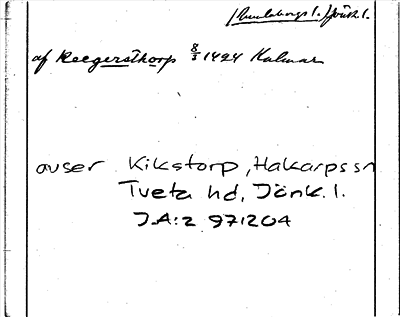 (Skaraborgs l.) Jönk. l.
af Reegersthorp 8/5 1424 Kalmar
avser Kikstorp, Hakarps sn
Tveta hd, Jönk. l.
J.A:2 971204